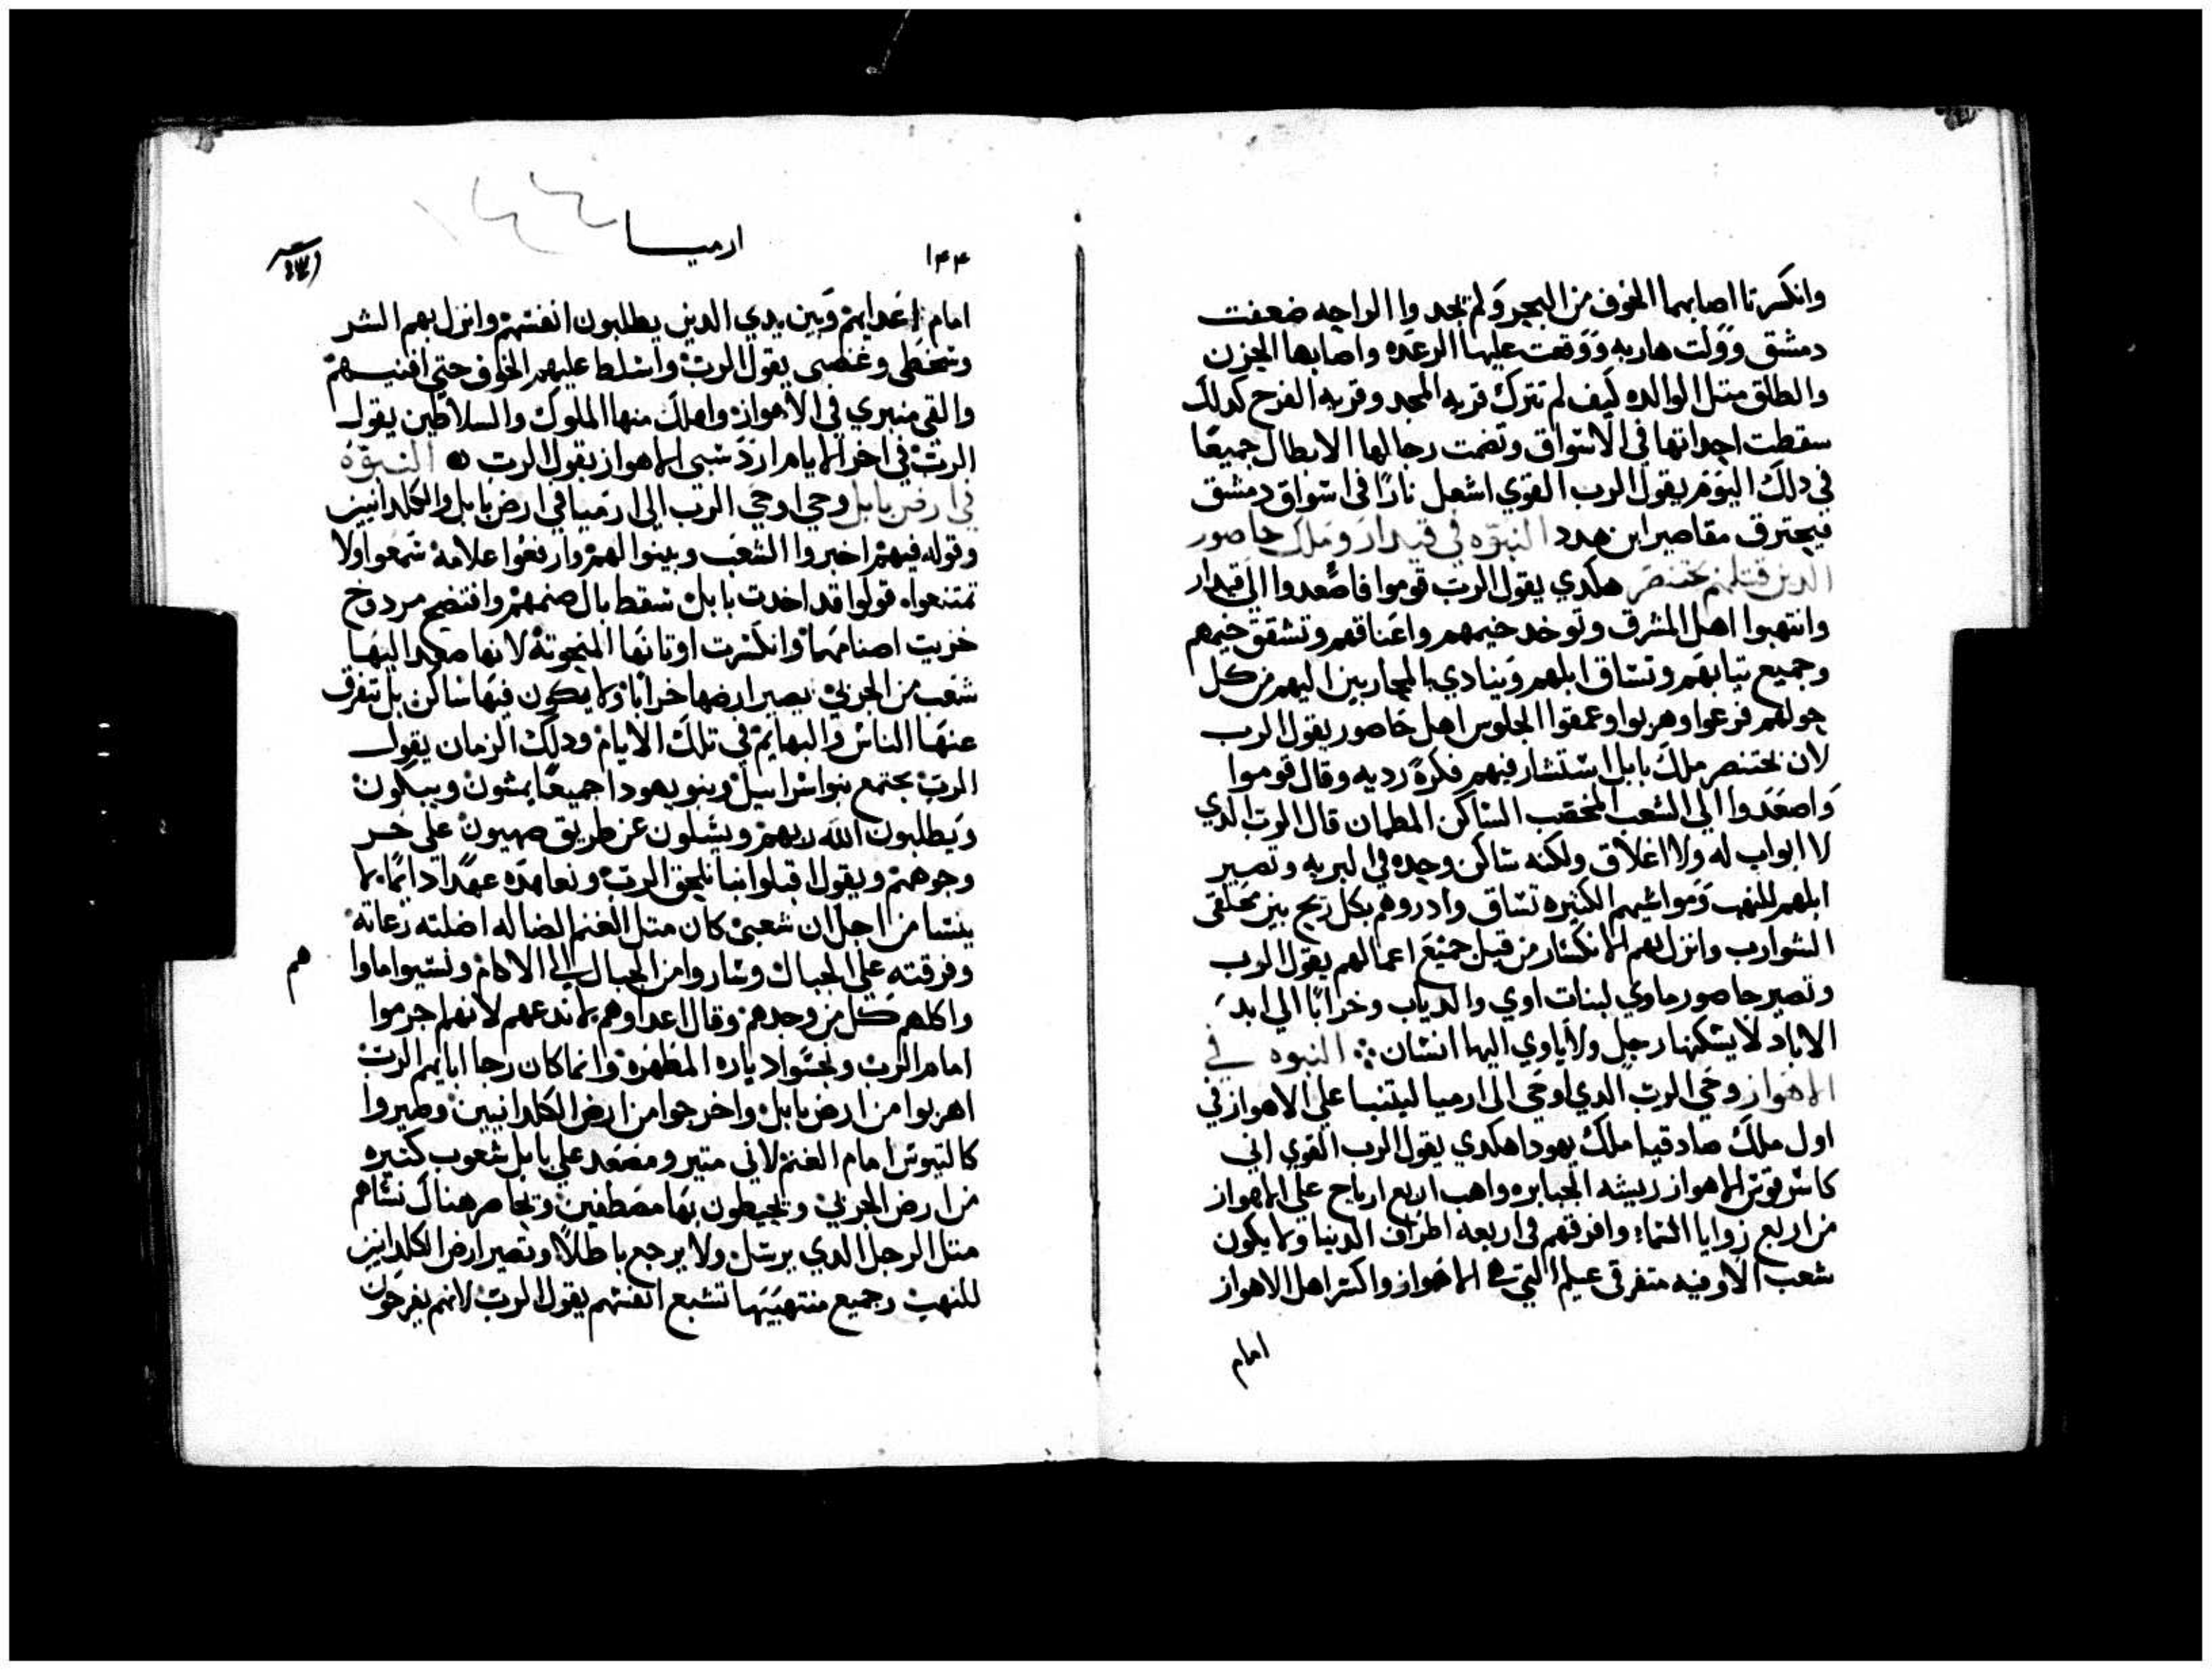 وانكسرتا اصابهما الخوف من البحر ولم يجدوا الراحه ضعفت
دمشق وولت هاربه ووقعت عليها الرعده واصابها الحزن
والطلق متل الوالده كيف لم تترك قريه المجد وقريه الفرح كدلك
سقطت احداتها في الاسواق وتضمت رجالها الابطال جميعا
في دلك اليوم يقول الرب القوي اشعل نارا في اسواق دمشق
فيحترق مقاصير ابن هدد النبوه في قيدار وملك حاصور
الدين قتلهم بختنصر هكدي يقول الرب قوموا فاصعدوا الي قيدار
وانتهبوا اهل المشرق وتوخد خيمهم واغناقهم وتشقق خيمهم
وجميع تيابهم وتساق ابلهم وينادي بالمحاربين اليهم من كل
حولهم فزعوا وهربوا وعمقوا الجلوس اهل حاصور يقول الرب
لان بختنصر ملك بابل استشار فيهم فكرة رديه وقال قوموا
واصعدوا الي الشعب المخصب الساكن المطمان قال الرب الدي
لا ابواب له ولا اغلاق ولكنه ساكن وحده في البريه وتصير
ابلهم للنهب ومواشيهم الكتيره تساق وادروهم بكل ريح بين محلقي
الشوارب وانزل بهم الانكسار من قبل جميع اعمالهم يقول الرب
وتصير حاصور ماوي لبنات اوي والدياب وخرابا الي ابد
الاباد لا يسكنها رجل ولا ياوي اليها انسان النبوه في
الاهواز وحي الرب الدي اوحي الي ارميا ليتنبا علي الاهواز في
اول ملك صادقيا ملك يهودا هكدي يقول الرب القوي اني
كاسر قوس الاهواز ريشه الجبابره واهب اربع ارياح علي الاهواز
من اربع زوايا السماء وافرقهم في اربعه اطراف الدنيا ولا يكون
شعب الا وفيه متفرقي عيلم التي في الاهواز واكسر اهل الاهواز
امام
١٤٤
ارميا
امام اعدايهم وبين يدي الدين يطلبون انفسهم وانزل بهم الشر
وسخطي وغضبي يقول الرب واسلط عليهم الخوف حتي افنيهم
والقي منبري في الاهواز واهلك منها الملوك والسلاطين يقول
الرب في اخر الايام ارد سبي الاهواز يقول الرب النبوة
في ارض بابل وحي اوحي الرب الي ارميا في ارض بابل والكلدانيين
وقوله فيهم اخبروا الشعب وبينوا لهم وارفعوا علامة سمعوا ولا
تمتنعوا قولوا قد اخدت بابل سقط بال صنمهم وافتضح مردوخ
خزيت اصنامها وانكسرت اوتانها المنحوتة لانها صعد اليها
شعب من الجربي يصير ارضها خرابا ولا يكون فيها ساكن بل تتفرق
عنها الناس والبهايم في تلك الايام ودلك الزمان يقول
الرب يجتمع بنوا اسراييل وبنو يهودا جميعا يمشون ويبكون
ويطلبون الله ربهم ويسلون عن طريق صهيون علي خر
وجوههم ويقول اقبلوا بنا نلحق الرب ونعاهده عهدا دايما لا
ينسا من اجل ان شعبي كان متل الغنم الضاله اضلته رعاته
وفرقته علي الجبال وساروا من الجبال الي الاكام ونسيوا ماوا
هم
واكلهم كل من وجدهم وقال اعداوهم لا ندعهم لانهم اجرموا
امام الرب ونجسوا دياره المطهرة وانما كان رجا ابايهم الرب
اهربوا من ارض بابل واخرجوا من ارض الكلدانيين وصيروا
كالتيوس امام الغنم لاني متير ومصعد علي بابل شعوب كتيره
من ارض الجربي ويحيطون بها مصطفين وتحاصر هناك نشاهم
متل الرجل الدي يرسل ولا يرجع باطلا وتصير ارض الكلدانيين
للنهب وجميع منتهبيها تشبع انفسهم يقول الرب لانهم يفرحون